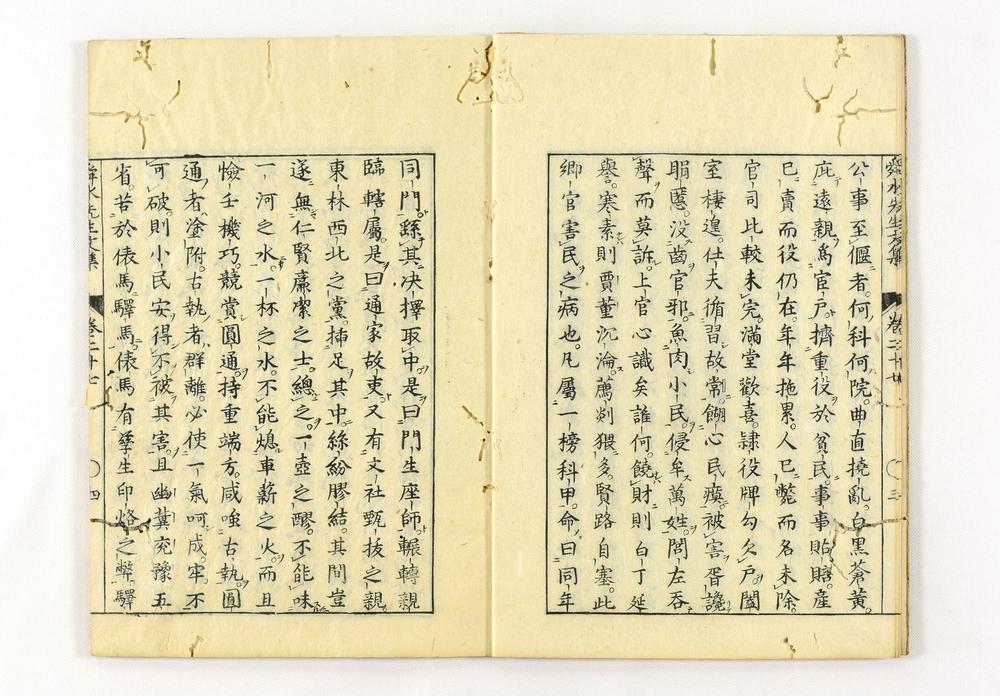 公事至偃者何科何院。曲直撓亂。白黑蒼黃。
庇遠親爲宦戶。擠重役於貧民。事事貽賠。產
已賣而役仍在。年年拖累。人已斃而名未除。
官司比較未完。滿堂歡喜。隸役牌勾欠戶。闔
室棲遑。仕夫循習故常。餬心民瘼。被害胥讒
睊慝。沒齒官邪。魚肉小民。侵牟萬姓。閭左吞
聲而莫訴。上官心識矣誰何。饒財則白丁延
譽。寒素則賈董沉淪。薦剡猥多。賢路自塞。此
鄉官害民之病也。凡屬一榜科甲。命曰同年
同門。繇其决擇取中。是曰門生座師。輾轉親
臨轄屬。是曰通家故吏。又有文社甄拔之親。
東林西北之黨。插足其中。絲紛膠結。其間豈
遂無仁賢廉潔之士。總之。一壺之醪。不能味
一河之水。一杯之水。不能熄車薪之火。而且
憸壬機巧。競賞圓通。持重端方。咸嗤古執。圓
通者塗附。古執者群離。必使一氣呵成。牢不
可破。則小民安得不被其害。且幽冀兗豫五
省。苦於俵馬驛馬。俵馬有孳生印烙之弊。驛
舜水先生文集 卷之二十七 四